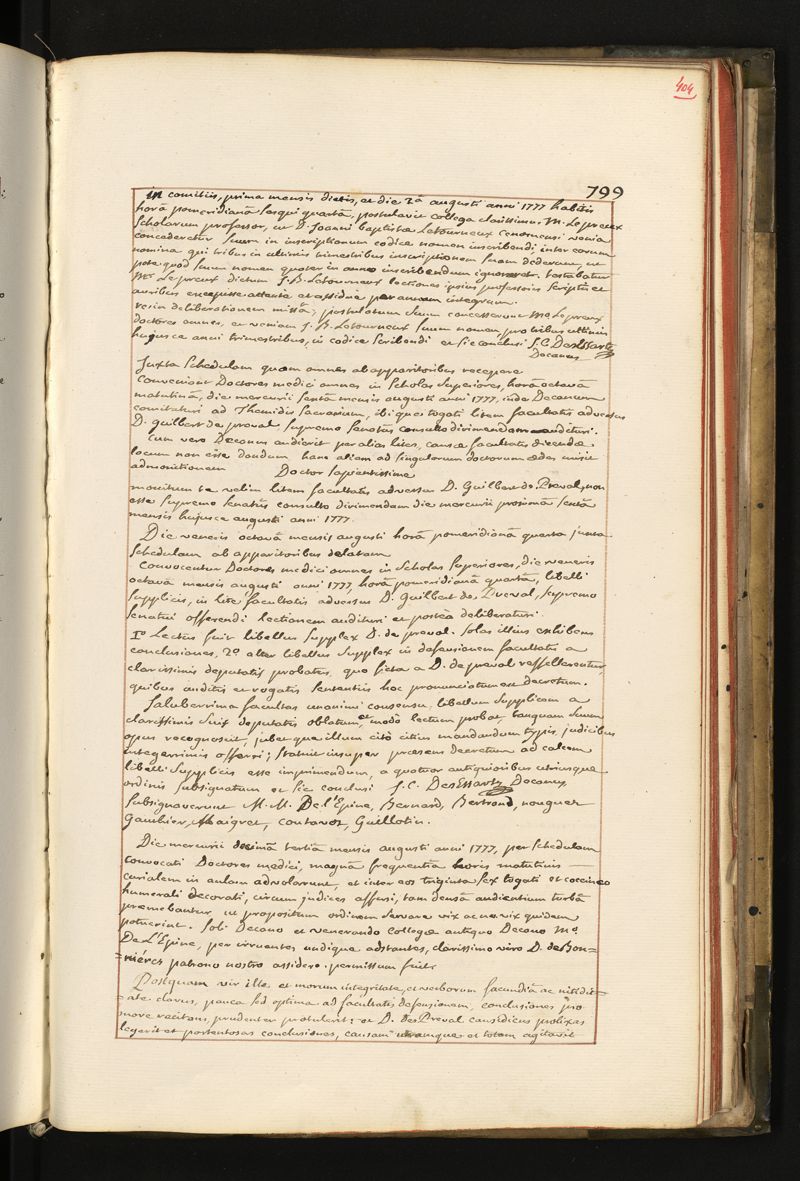 404
799
in comitiis, prima mensis dictis, et die 2â augusti anni 1777 habitis
horâ pomeridianâ sesqui quartâ, postulavit collega clarissimus M. Le preux
scholarum professor, ut D. Joanni baptistæ Letourneux Cenomensi venia
concederetur suum in inscriptionum codice nomen inscribendi, inter eorum
nomina qui tribus in ultimis trimestribus inscriptionem suam dederant, ut
pote quod suum nomen quater in anno inscribendum ignoraret. testabatur
Mer Le preux dictum J. B. Letourneux lectiones ipsius professoris scriptis et
auribus excepisse attente et assidue per annum integrum.
re in deliberationem missâ, postulatum suum concesserunt Mo Le preux
doctores omnes, et veniam J. B. Letourneux suum nomen, pro tribus ultimis
hujusce anni trimestribus, in codice scribendi et sic conclusi J. C. DesEssartz
Decanus
Juxta schedulam quam omnes ab apparitoribus recepere
Conveniant Doctores medici omnes in scholas superiores, horâ octavâ
matutinâ, die mercurii sextâ mensis augusti anni 1777, inde Decanum
comitaturi ad Themidis sacrarium, ibique togati litem facultatis adversus
D. Guilbert de preval supremo senatûs consulto dirimendam audituri.
Cum vero Decanus audierit per alias lites, causæ facultatis dicendæ
locum non esse dandum hanc aliam ad singulorum doctorum ædes misit
admonitionem Doctor sapientissime
monitum te velim litem facultatis adversus D. Guilbert de Preval, non
esse supremo senatûs consulto dirimendam die mercurii proximâ sextâ
mensis hujusce augusti anni 1777.
Die veneris octavâ mensis augusti horâ pomeridianâ quarta juxta
schedulam ab apparitoribus delatam
Convocentur Doctores medici omnes in scholas superiores, die veneris
octavâ mensis augusti anni 1777, horâ pomeridianâ quartâ, libelli
supplicis, in lite facultatis adversus D. Guilbert de Preval, supremo
senatui offerendi lectionem audituri et posteà deliberaturi.
1o Lectus fuit libellus supplex D. de preval. solas illius exhibens
conclusiones, 2o alter libellus supplex in defensionem facultatis a
clarissimis deputatis probatus, quo ficta a D. de preval reffellerentur,
quibus auditis et rogatis sententiis hoc pronunciatum est decretum.
Saluberrima facultas unanimi consensu libellum supplicem a
clarissimis suis deputatis oblatum, et modo lectum probat, tanquam suum
opus recognoscit, jubetque illum citò citius mandandum typis, judicibus
integerrimis offerri; statuit insuper præsens decretum ad calcem
libelli supplicis esse imprimendum, a quatuor antiquioribus utriusque
ordinis subsignatum et sic conclusi J. C. DesEssartz Decanus,
subsignaverunt M. M. De l'Epine, Bernard, Bertrand, nouguez
Gauthier, Maigret, coutavoz, Guillotin.
Die mercurii decimâ tertiâ mensis augusti anni 1777, per schedulam
convocati Doctores medici, magnâ frequentiâ horis matutinis
curialem in aulam advolarunt, et inter eos triginta sex togati et coccineo
humerali decorati, circum judices affusi, tam densâ audientium turbâ
præmebantur, ut propositum ordinem servare vix ac ne vix quidem
potuerint. Soli Decano et venerando Collegæ antiquo Decano Mo
De L'Epine, per irruentes undique adstantes, clarissimo viro D. de Bon=
=nières patrono nostro assidere permissum fuit.
Postquam vir ille et morum integritate, et verborum facundiâ ac nitidit=
=ate clarus, pauca sed optima ad facultatis defensionem, conclusiones pro
more recitans, prudenter protulerit; et D. de Preval causidicus prolixas
legerit et portentosas conclusiones, causam utramque et totam agitavit